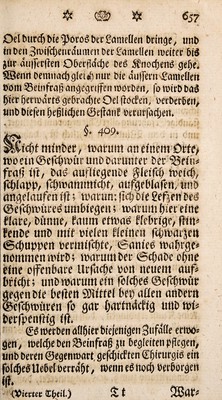 657
Oel durch die Poros der Lamellen dringe, und
in den Zwischenräumen der Lamellen weiter bis
zur äussersten Oberfläche des Knochens gehe.
Wenn demnach gleich nur die äussern Lamellen
vom Beinfraß angegriffen worden, so wird das
hier herwärts gebrachte Oel stocken, verderben,
und diesen heßlichen Gestank verursachen.
§. 409.
Nicht minder, warum an einem Orte,
wo ein Geschwür und darunter der Bein-
fraß ist, das aufliegende Fleisch weich,
schlapp, schwammicht, aufgeblasen, und
angelaufen ist; warum sich die Lefzen des
Geschwüres umbiegen; warum hier eine
klare, dünne, kaum etwas klebrige, stin-
kende und mit vielen kleinen schwarzen
Schuppen vermischte, Sanies wahrge-
nommen wird; warum der Schade ohne
eine offenbare Ursache von neuem auf-
bricht; und warum ein solches Geschwür
gegen die besten Mittel bey allen andern
Geschwüren so gar hartnäckig und wi-
derspenstig ist.
Es werden allhier diejenigen Zufälle erwo-
gen, welche den Beinfraß zu begleiten pflegen,
und deren Gegenwart geschickten Chirurgis ein
solches Uebel verräht, wenn es noch verborgen
ist.
(Vierter Theil.) Tt War-